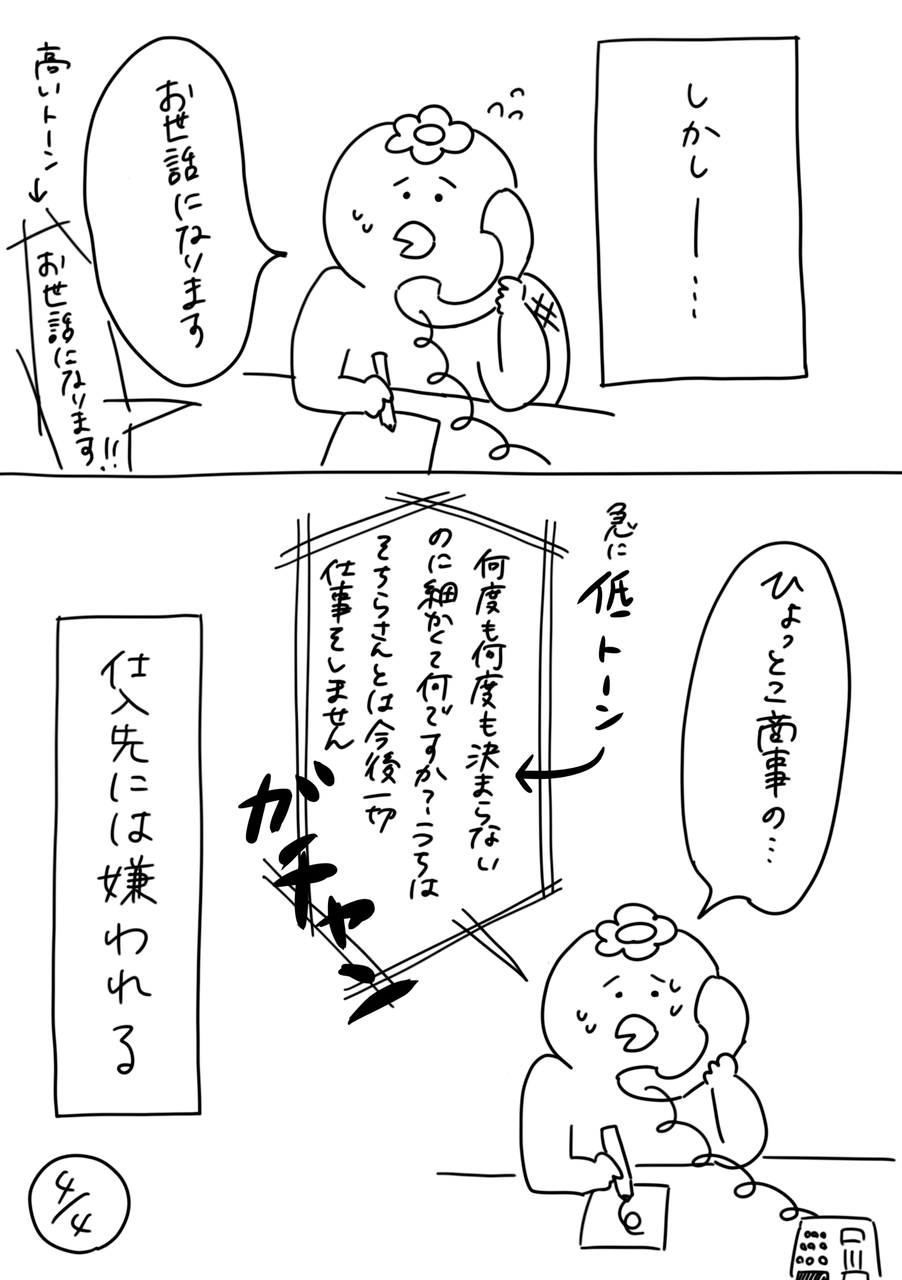 しかしー…
お世話になります
高いトーン
お世話になります!!
ひょっとこ商事の…
急に低トーン
何度も何度も決まらない
のに細かくて何ですか？うちは
そちらさんとは今後一切
仕事をしません
ガチャン
仕入先には嫌われる
4/4